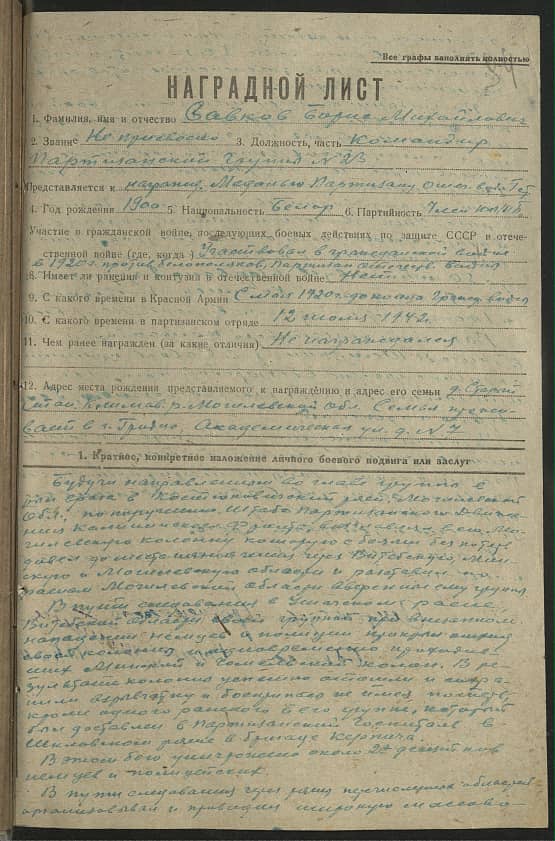 Все графы заполнять полностью
НАГРАДНОЙ ЛИСТ
1. Фамилия, имя и отчество Савков Борис Михайлович
2. Звание Не присвоено 3. Должность, часть Командир
Партизанской группы N
Представляется к медалью Партизану отеч.
4. Год рождения 1900 5. Национальность Белор 6. Партийность Член
Участие в гражданской войне, последующих боевых действиях по защите СССР и отече-
ственной войне (где, когда) Участвовал в гражданской войне
в 1920 г. против белополяков, Партизан отечеств. войны
8. Имеет ли ранения и контузии в отечественной войне Нет
9. С какого времени в Красной Армии С мая 1920 г до конца войны
10. С какого времени в партизанском отряде 12 июля 1942 г.
11. Чем ранее награжден (за какие отличия) Не награждался
12. Адрес места рождения представляемого к награждению и адрес его семьи д. Старый
Стан, р. Могилевской обл. Семья прожи-
вает в г. Гродно, Академическая ул. д. N 7
1. Краткое, конкретное изложение личного боевого подвига или заслуг
Будучи направленным во главе группы в
район Могилевской
обл., по поручению Штаба Партизанского Движе-
ния Калининского Фронта, возглавлял всю Мо-
гилевскую колонну которую с боями без потерь
довел до места через Витебскую, Мин-
скую и Могилевскую области и по
районам Могилевской области группы
В пути следования в Ушачском районе
Витебской области своей группой при внезапном
нападении немцев и полиции прикрыл отход
своей колонны и одновременно
Минской и Гомельской колонн. В ре-
зультате колонны успешно отошли и сохра-
нили взрывчатку и боеприпасы не имея потерь,
кроме одного раненого в его группе, который
был доставлен в Партизанский Госпиталь в
Шкловском районе в бригаде Кирпича.
В этом бою уничтожено около 2х десятков
немцев и полицейских.
В пути следования через ряд перечисленных областей
организовывал и проводил широкую массово-